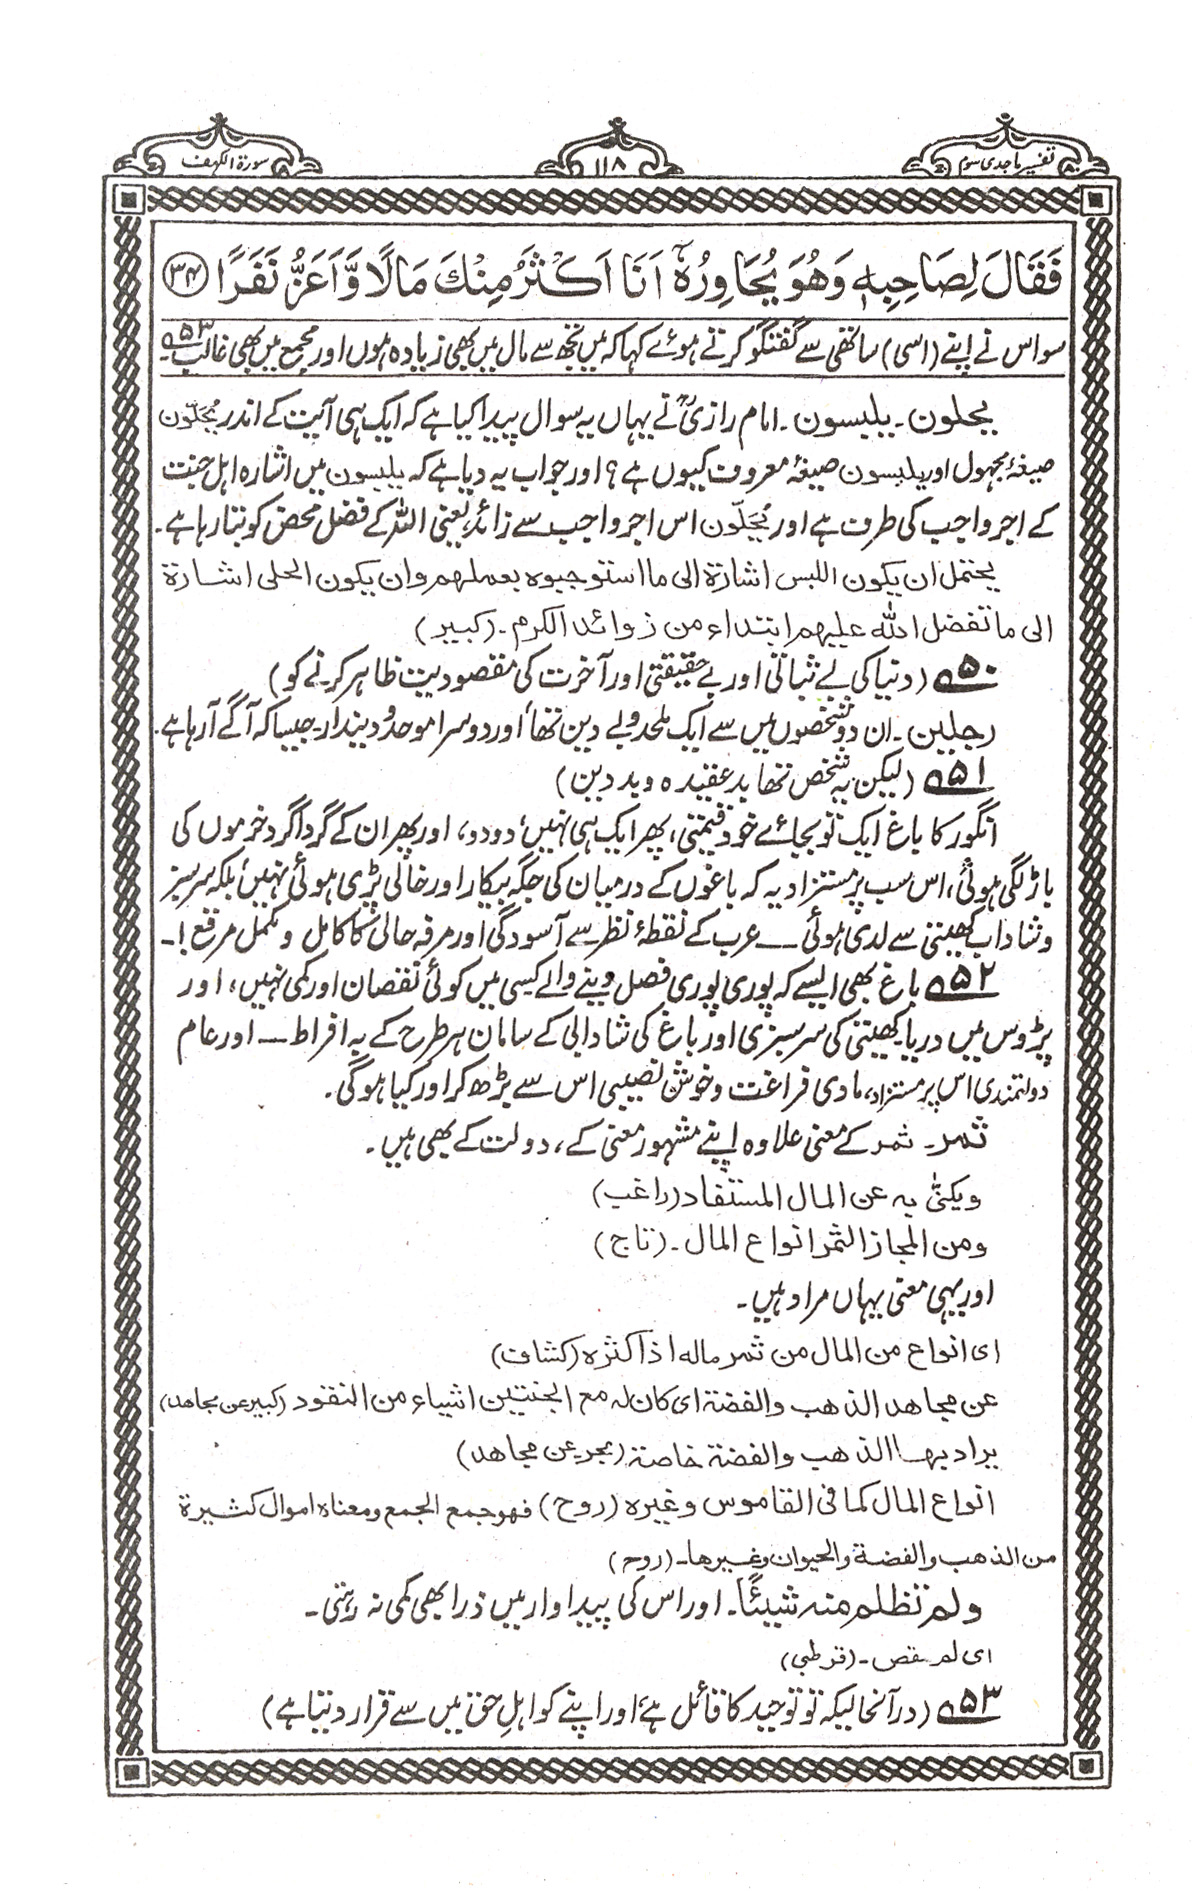 تفسیر ماجدی سوم
۱۱۸
سورۃ الکہف
فَقَالَ لِصَاحِبِهٖ وَهُوَ يُحَاوِرُهٗٓ اَنَا اَكْثَرُ مِنْكَ مَالًا وَّاَعَزُّ نَفَرًا ۳۴
سو اس نے اپنے (اسی) ساتھی سے گفتگو کرتے ہوئے کہا کہ میں تجھ سے مال میں بھی زیادہ ہوں اور مجمع میں بھی غالب ۵۳
یحلون۔ یلبسون۔ امام رازیؒ نے یہاں یہ سوال پیدا کیا ہے کہ ایک ہی آیت کے اندر یُحَلَّون
صیغۂ مجہول اور یلبسون صیغۂ معروف کیوں ہے؟ اور جواب یہ دیا ہے کہ یلبسون میں اشارہ اہل جنت
کے اجر واجب کی طرف ہے اور یُحَلَّون اس اجر واجب سے زائد، یعنی اللہ کے فضل محض کو بتا رہا ہے۔
یحتمل ان یکون اللبس اشارۃ الی ما استوجبوہ بعملہم وان یکون الحلی اشارۃ
الی ما تفضل اللہ علیہم ابتداء من زوائد الکرم۔ (کبیر)
۵۰ (دنیا کی بے ثباتی اور بے حقیقتی اور آخرت کی مقصودیت ظاہر کرنے کو)
رجلین۔ ان دو شخصوں میں سے ایک ملحد و بے دین تھا، اور دوسرا موحد و دیندار۔ جیسا کہ آگے آرہا ہے۔
۵۱ (لیکن یہ شخص تھا بد عقیدہ و بد دین)
انگور کا باغ ایک تو بجائے خود قیمتی، پھر ایک ہی نہیں، دو دو، اور پھر ان کے گردا گرد خرموں کی
باڑ لگی ہوئی، اس سب پر مستزاد یہ کہ باغوں کے درمیان کی جگہ بیکار اور خالی پڑی ہوئی نہیں، بلکہ سرسبز
و شاداب کھیتی سے لدی ہوئی — عرب کے نقطۂ نظر سے آسودگی اور مرفہ حالی کا کامل و مکمل مرقع!۔
۵۲ باغ بھی ایسے کہ پوری پوری فصل دینے والے کسی میں کوئی نقصان اور کمی نہیں، اور
پڑوس میں دریا، کھیتی کی سرسبزی اور باغ کی شادابی کے سامان ہر طرح کے بہ افراط — اور عام
دولتمندی اس پر مستزاد، مادی فراغت و خوش نصیبی اس سے بڑھ کر اور کیا ہوگی۔
ثمر۔ ثمر کے معنی علاوہ اپنے مشہور معنی کے، دولت کے بھی ہیں۔
ویکنّٰی بہ عن المال المستفاد (راغب)
ومن المجاز الثمر انواع المال۔ (تاج)
اور یہی معنی یہاں مراد ہیں۔
ای انواع من المال من ثمر مالہ اذا کثرہ (کشاف)
عن مجاہد الذھب والفضۃ ای کان لہ مع الجنتین اشیاء من النقود (کبیر عن مجاہد)
یراد بہا الذھب والفضۃ خاصۃ (بحر عن مجاہد)
انواع المال کما فی القاموس وغیرہ (روح) فھو جمع الجمع ومعناہ اموال کثیرۃ
من الذھب والفضۃ والحیوان وغیرہا۔ (روح)
ولم تظلم منہ شیئًا۔ اور اس کی پیداوار میں ذرا بھی کمی نہ رہتی۔
ای لم ینقص۔ (قرطبی)
۵۳ (درآنحالیکہ تو توحید کا قائل ہے، اور اپنے کو اہلِ حق میں سے قرار دیتا ہے)